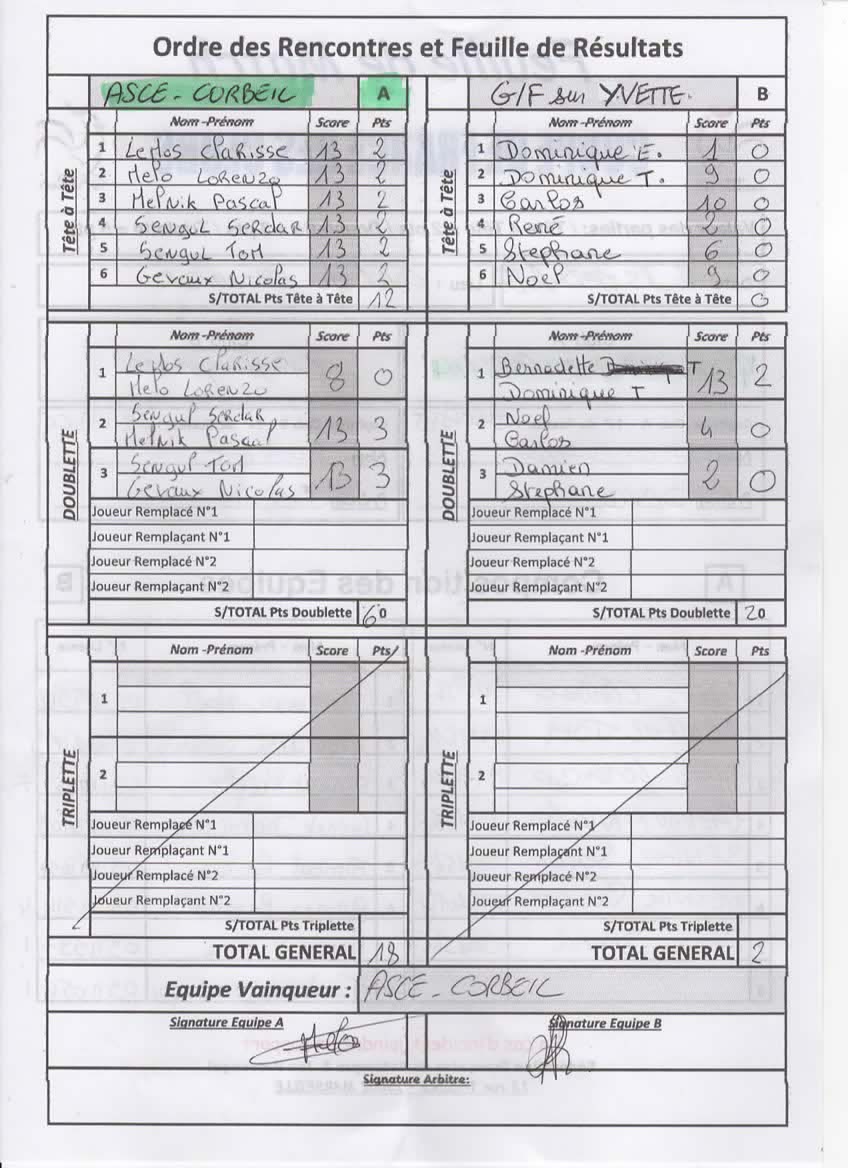 Ordre des Rencontres et Feuille de Résultats
ASCE - CORBEIL A G/F sur YVETTE. B
Nom -Prénom Score Pts Nom -Prénom Score Pts
Tête à Tête Tête à Tête
1 Lemos Clarisse 13 2 1 Dominique E. 1 0
2 Melo LORENZO 13 2 2 Dominique T. 9 0
3 Melnik Pascal 13 2 3 Carlos 10 0
4 SENGUL SERDAR 13 2 4 René 2 0
5 SENGUL TOM 13 2 5 Stephane 6 0
6 Gevaux Nicolas 13 2 6 Noel 9 0
S/TOTAL Pts Tête à Tête 12 S/TOTAL Pts Tête à Tête 0
Nom -Prénom Score Pts Nom -Prénom Score Pts
DOUBLETTE DOUBLETTE
1 Lemos Clarisse 8 0 1 Bernadette T 13 2
Melo LORENZO Dominique T
2 Sengul SERDAR 13 3 2 Noel 4 0
Melnik Pascal Carlos
3 Sengul TOM 13 3 3 Damien 2 0
Gevaux Nicolas Stephane
Joueur Remplacé N°1 Joueur Remplacé N°1
Joueur Remplaçant N°1 Joueur Remplaçant N°1
Joueur Remplacé N°2 Joueur Remplacé N°2
Joueur Remplaçant N°2 Joueur Remplaçant N°2
S/TOTAL Pts Doublette 6 0 S/TOTAL Pts Doublette 2 0
Nom -Prénom Score Pts Nom -Prénom Score Pts
TRIPLETTE TRIPLETTE
1 1
2 2
Joueur Remplacé N°1 Joueur Remplacé N°1
Joueur Remplaçant N°1 Joueur Remplaçant N°1
Joueur Remplacé N°2 Joueur Remplacé N°2
Joueur Remplaçant N°2 Joueur Remplaçant N°2
S/TOTAL Pts Triplette S/TOTAL Pts Triplette
TOTAL GENERAL 18 TOTAL GENERAL 2
Equipe Vainqueur : ASCE - CORBEIL
Signature Equipe A Signature Equipe B
Melo
Signature Arbitre: